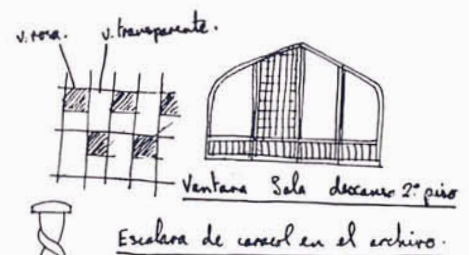 v. rosa. v. transparente.
Ventana Sala descanso 2º piso
Escalara de caracol en el archivo.